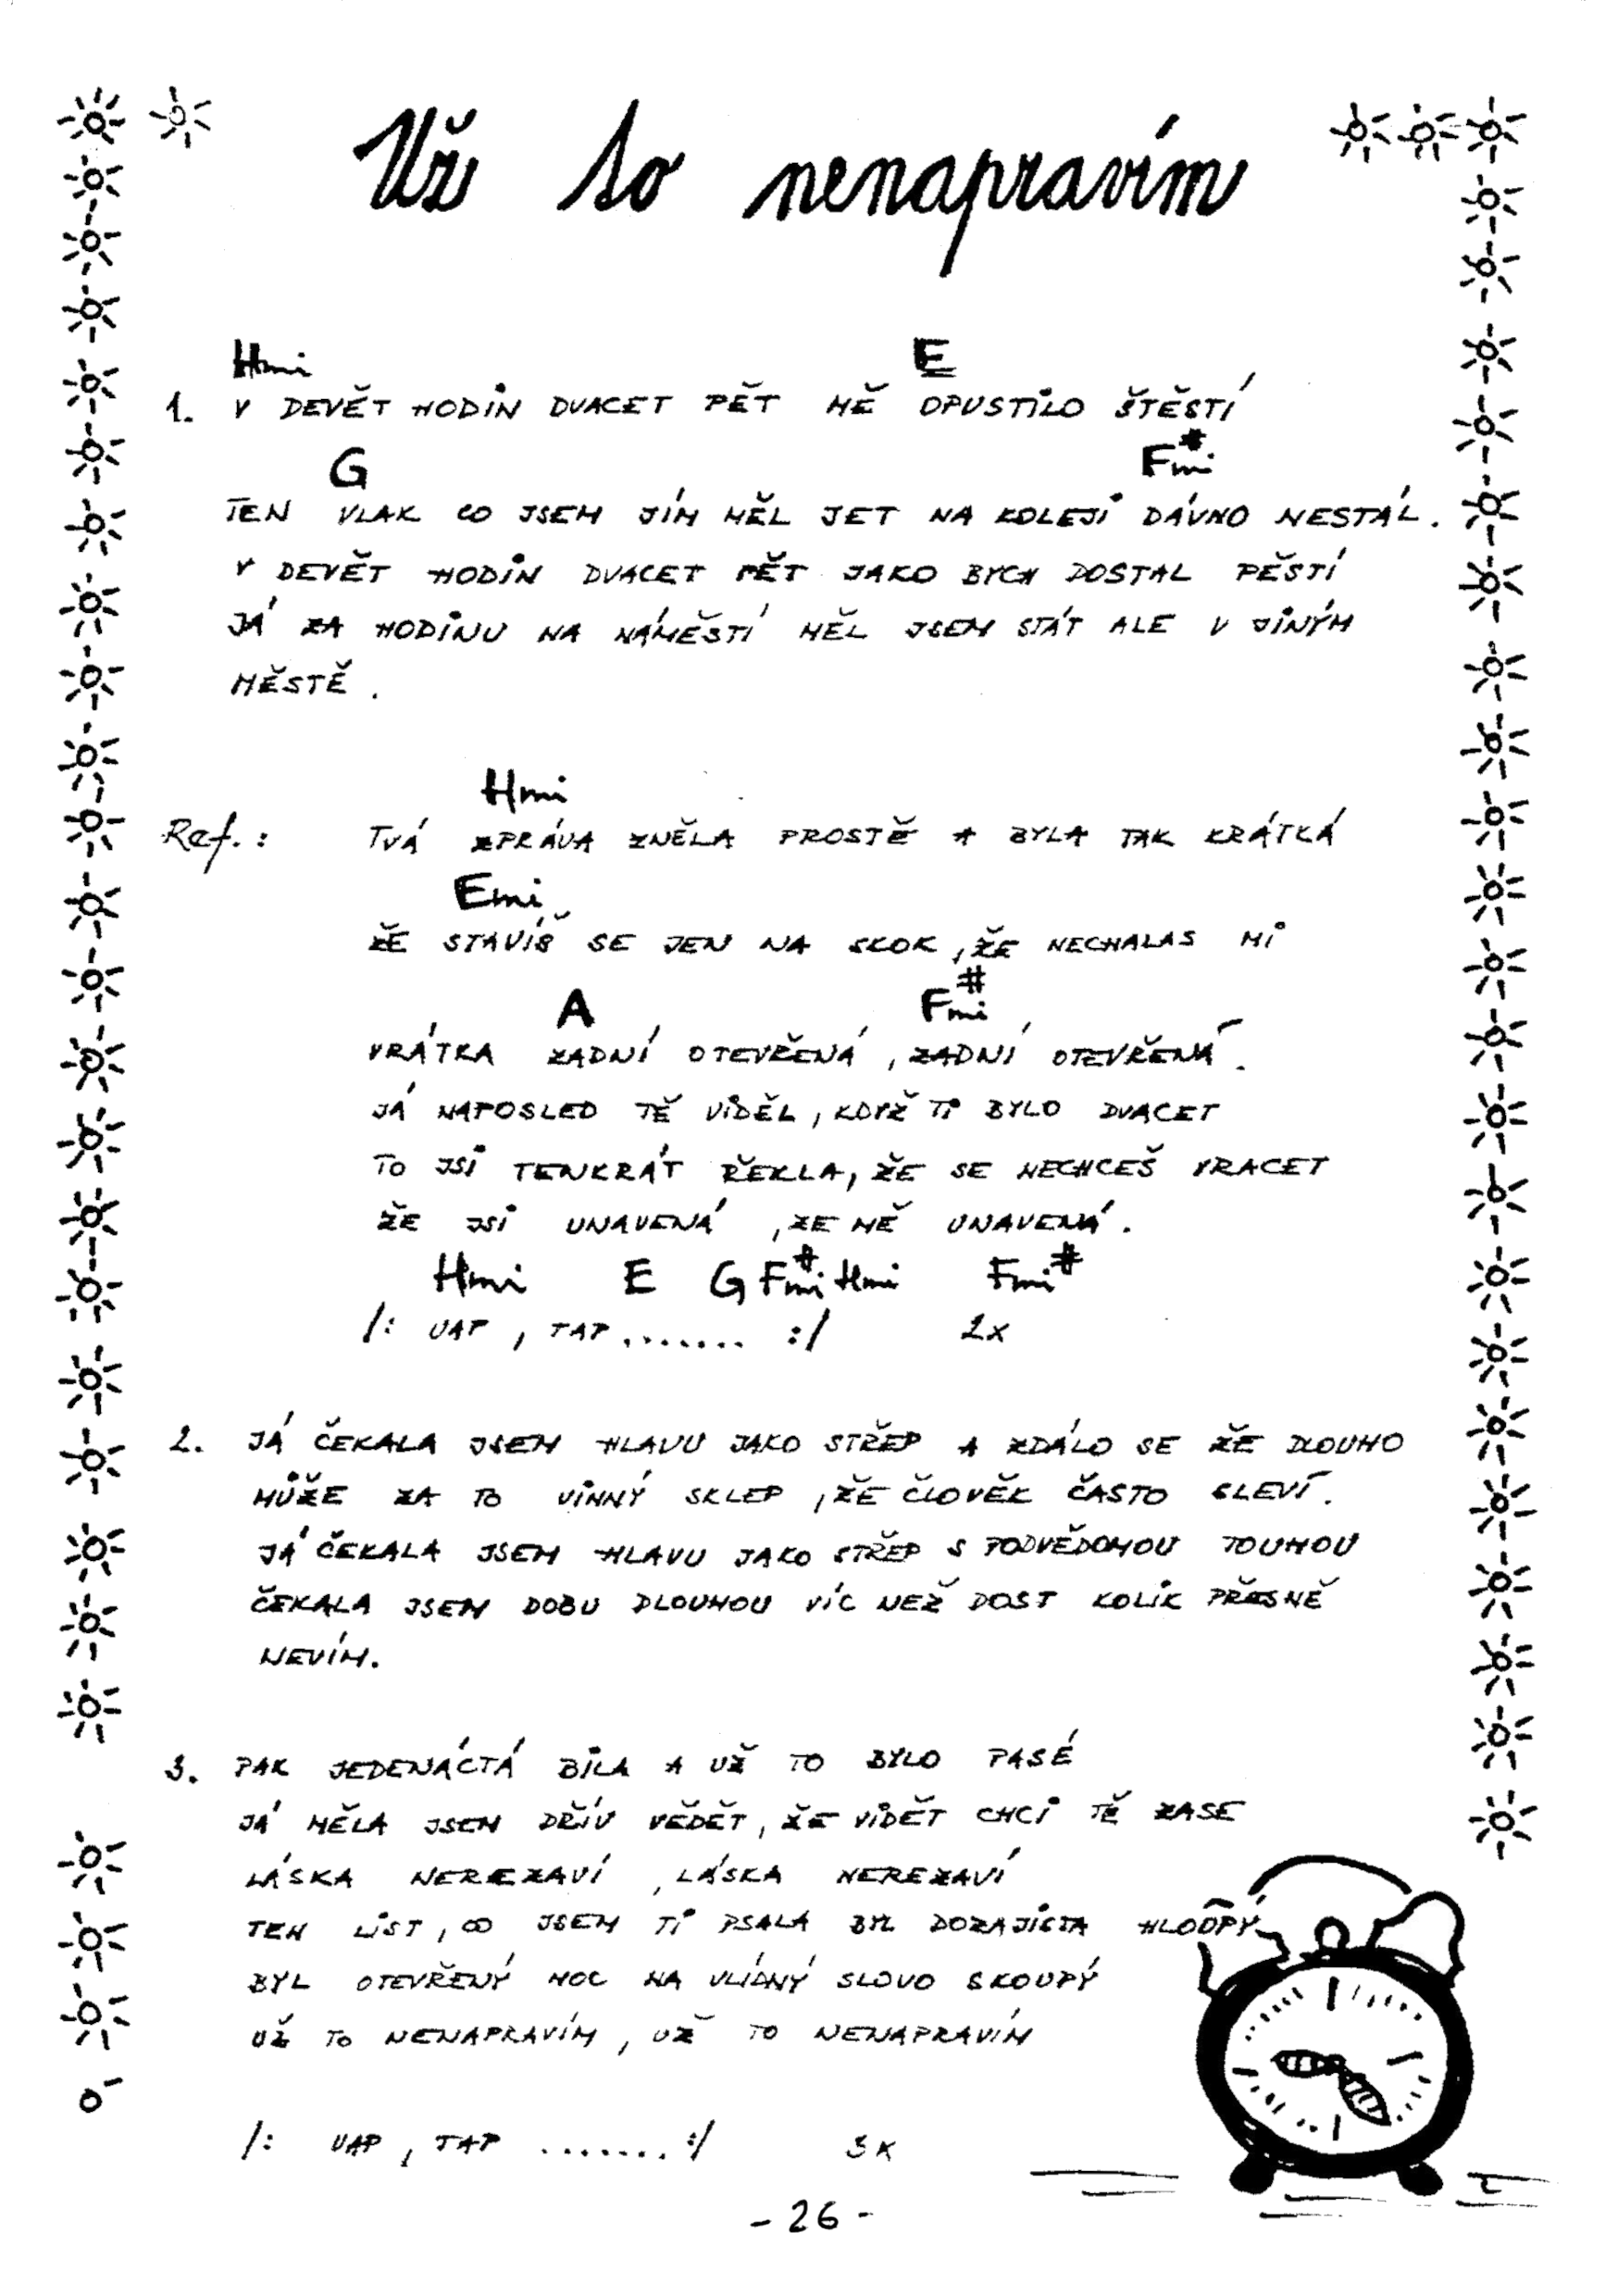 Už to nenapravím
Hmi E
1. V DEVĚT HODIN DVACET PĚT MĚ OPUSTILO ŠTĚSTÍ
G Fmi#
TEN VLAK CO JSEM JÍM MĚL JET NA KOLEJI DÁVNO NESTÁL.
V DEVĚT HODIN DVACET PĚT JAKO BYCH DOSTAL PĚSTÍ
JÁ ZA HODINU NA NÁMĚSTÍ MĚL JSEM STÁT ALE V JINÝM
MĚSTĚ.
Hmi
Ref.: TVÁ ZPRÁVA ZNĚLA PROSTĚ A BYLA TAK KRÁTKÁ
Emi
ŽE STAVÍŠ SE JEN NA SKOK, ŽE NECHALAS MI
A Fmi#
VRÁTKA ZADNÍ OTEVŘENÁ, ZADNÍ OTEVŘENÁ.
JÁ NAPOSLED TĚ VIDĚL, KDYŽ TI BYLO DVACET
TO JSI TENKRÁT ŘEKLA, ŽE SE NECHCEŠ VRACET
ŽE JSI UNAVENÁ, ZE MĚ UNAVENÁ.
Hmi E G Fmi# Hmi Fmi#
/: UAP, TAP....... :/ 2x
2. JÁ ČEKALA JSEM HLAVU JAKO STŘEP A ZDÁLO SE ŽE DLOUHO
MŮŽE ZA TO VINNÝ SKLEP, ŽE ČLOVĚK ČASTO SLEVÍ.
JÁ ČEKALA JSEM HLAVU JAKO STŘEP S PODVĚDOMOU TOUHOU
ČEKALA JSEM DOBU DLOUHOU VÍC NEŽ DOST KOLIK PŘESNĚ
NEVÍM.
3. PAK JEDENÁCTÁ BILA A UŽ TO BYLO PASÉ
JÁ MĚLA JSEM DŘÍV VĚDĚT, ŽE VIDĚT CHCI TĚ ZASE
LÁSKA NEREZAVÍ, LÁSKA NEREZAVÍ
TEN LIST, CO JSEM TI PSALA BYL DOZAJISTA HLOUPÝ
BYL OTEVŘENÝ MOC NA VLÍDNÝ SLOVO SKOUPÝ
UŽ TO NENAPRAVÍM, UŽ TO NENAPRAVÍM
/: UAP, TAP ....... :/ 3x
- 26 -